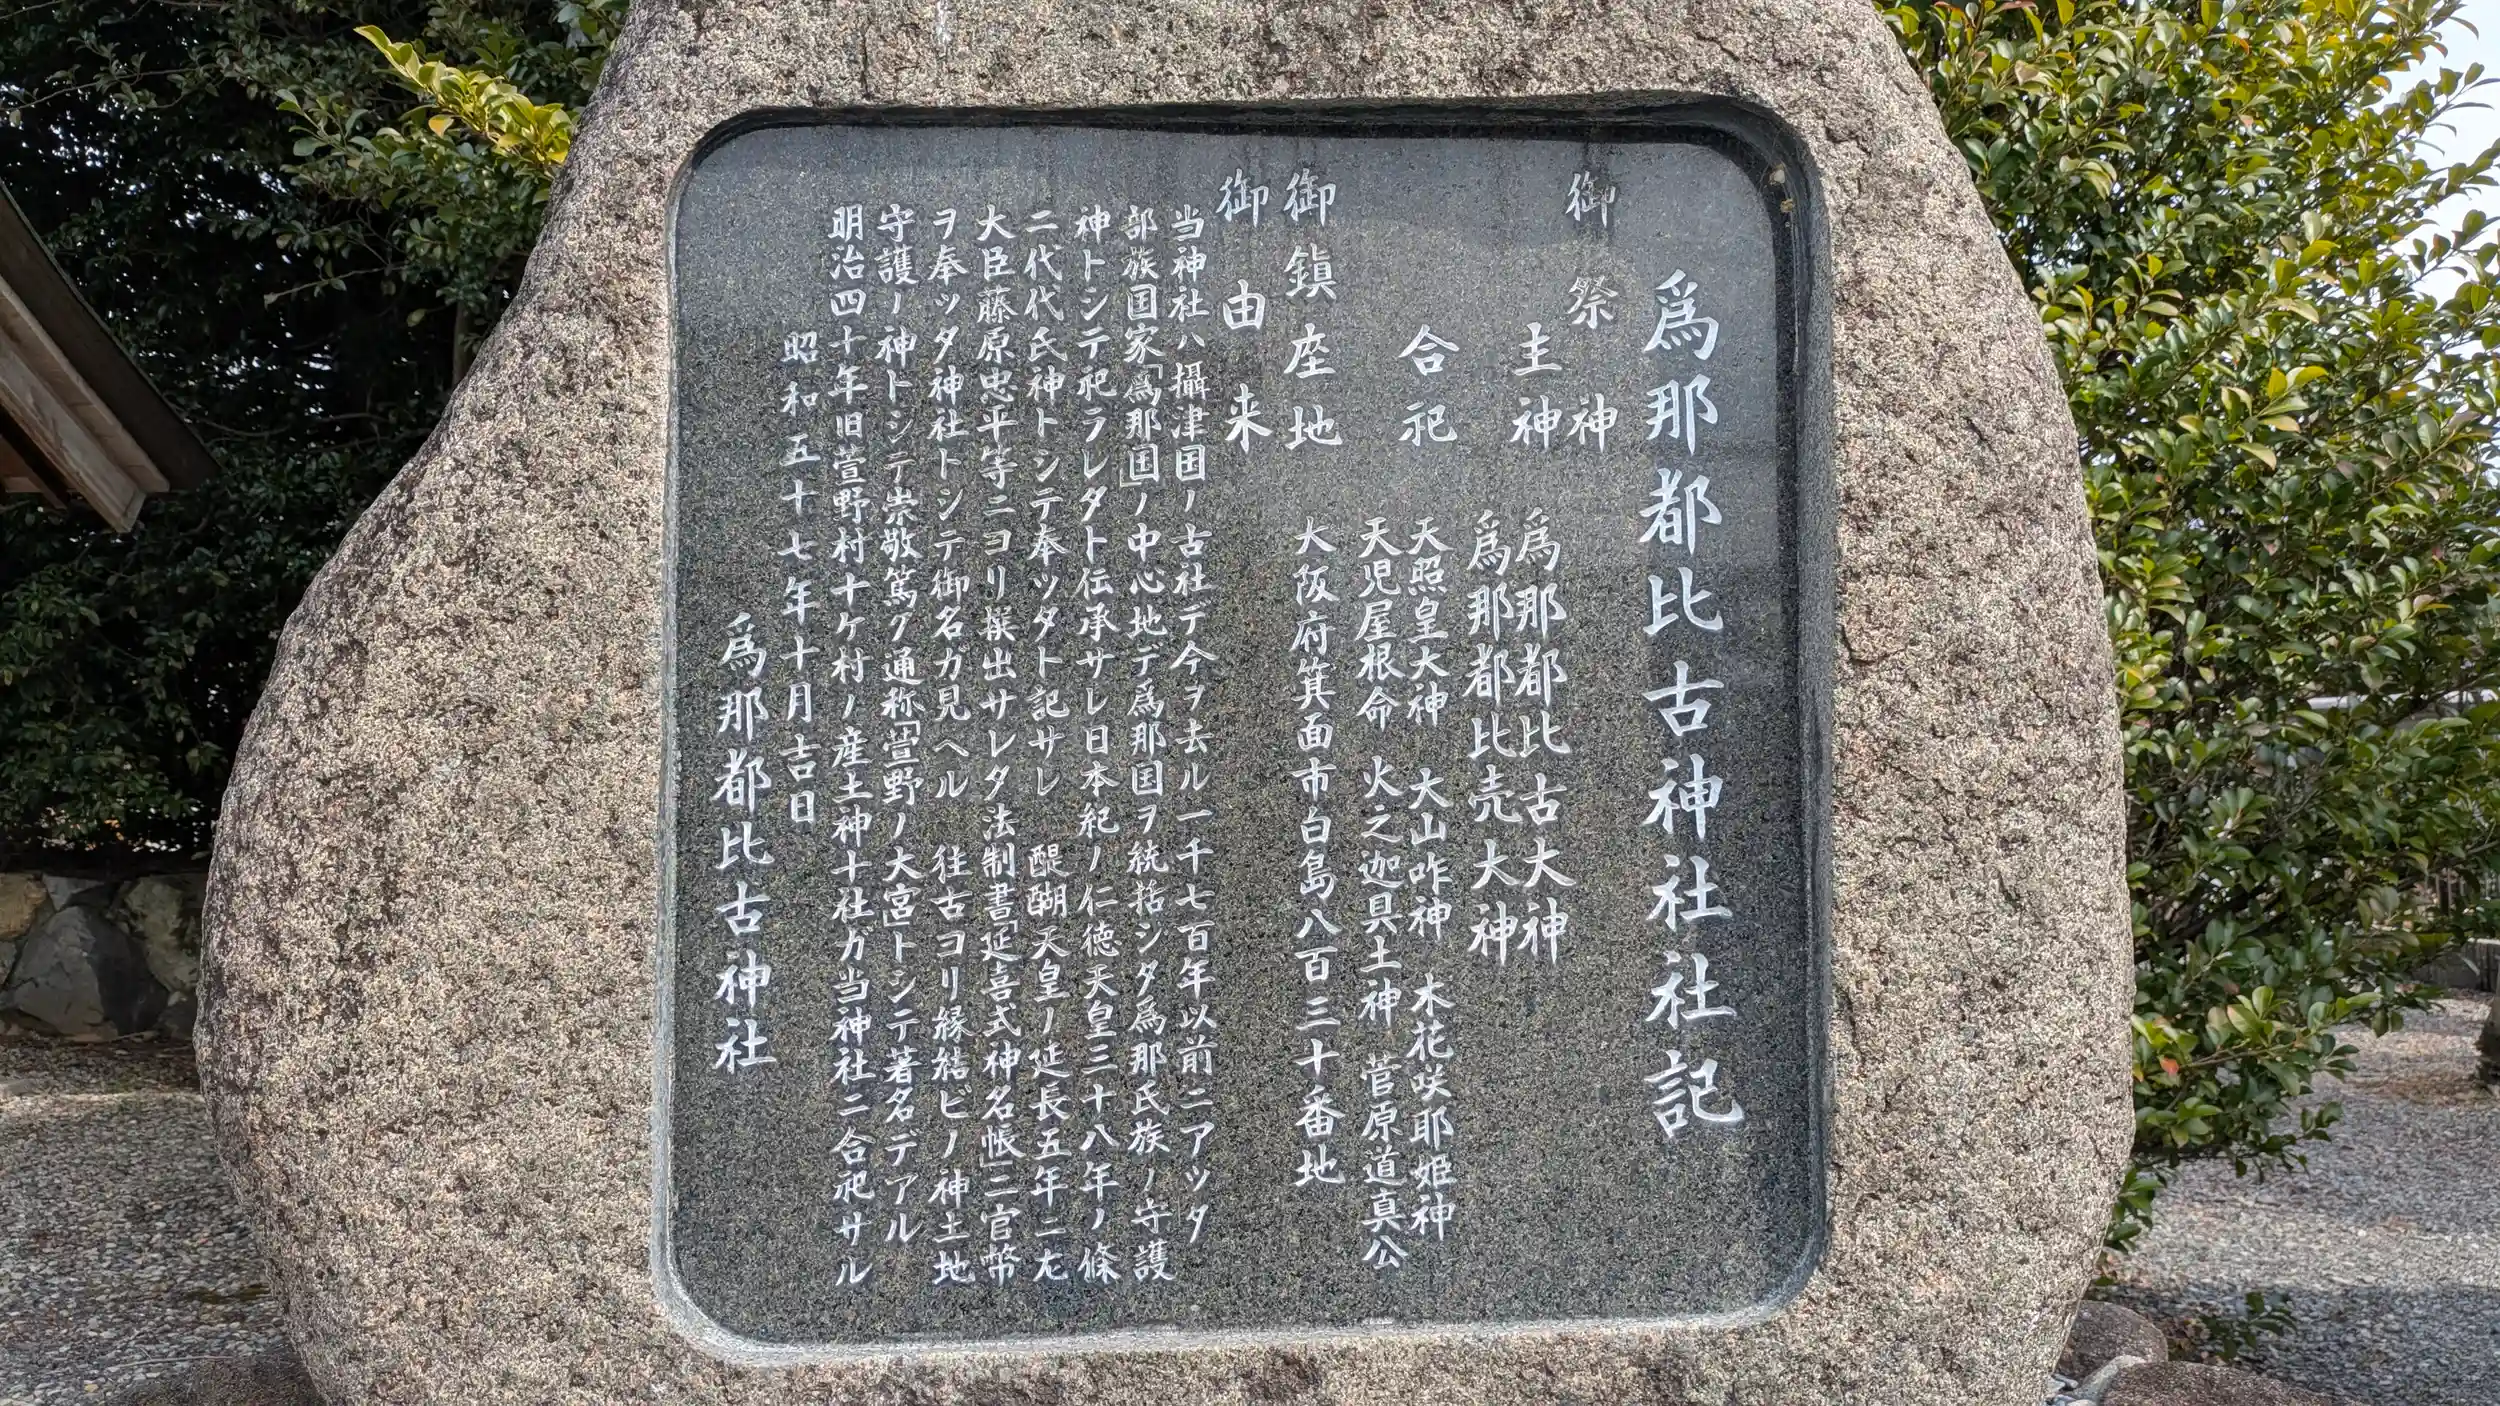 爲那都比古神社社記
御祭神
主神 爲那都比古大神
爲那都比売大神
合祀 天照皇大神 大山咋神 木花咲耶姫神
天児屋根命 火之迦具土神 菅原道真公
御鎮座地 大阪府箕面市白島八百三十番地
御由来
当神社ハ攝津国ノ古社デ今ヲ去ル一千七百年以前ニアツタ
部族国家「爲那国」ノ中心地デ爲那国ヲ統括シタ爲那氏族ノ守護
神トシテ祀ラレタト伝承サレ日本紀ノ仁徳天皇三十八年ノ條
二代代氏神トシテ奉ツタト記サレ 醍醐天皇ノ延長五年ニ左
大臣藤原忠平等ニヨリ撰出サレタ法制書「延喜式神名帳」ニ官幣
ヲ奉ツタ神社トシテ御名ガ見ヘル 往古ヨリ縁結ビノ神土地
守護ノ神トシテ崇敬篤ク通称「萱野ノ大宮」トシテ著名デアル
明治四十年旧萱野村十ケ村ノ産土神十社ガ当神社ニ合祀サル
昭和五十七年十月吉日
爲那都比古神社